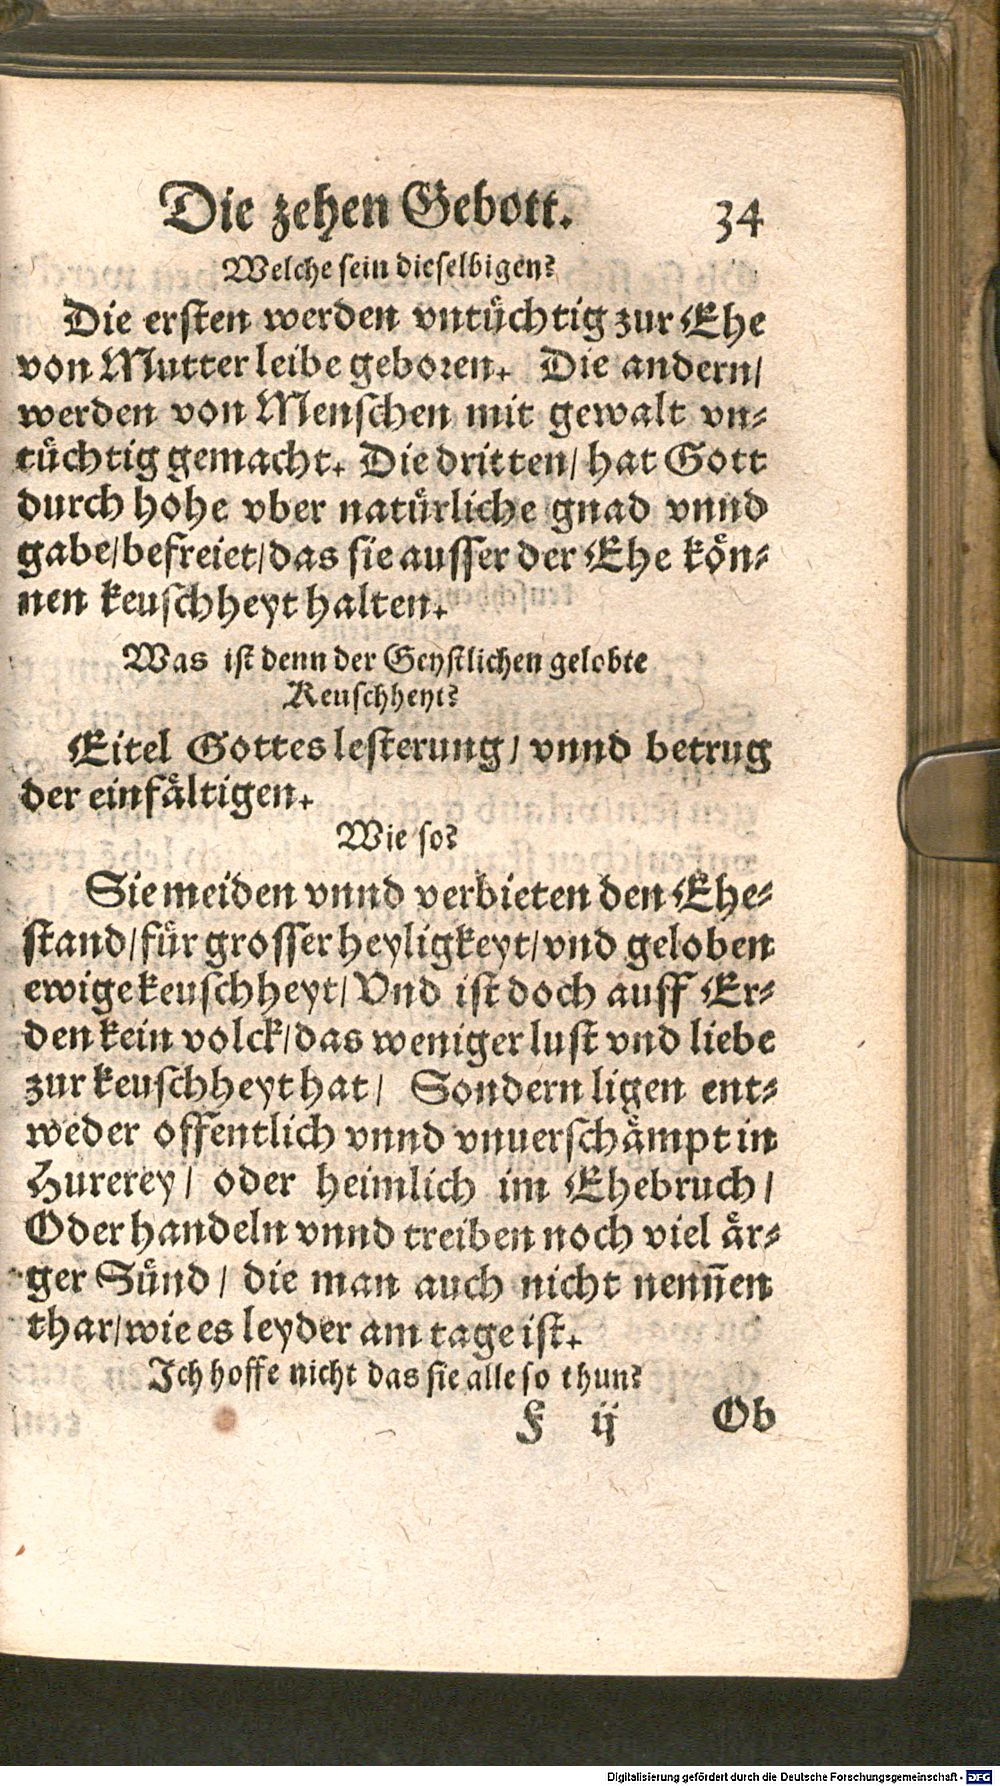 Die zehen Gebott. 34
Welche sein dieselbigen?
Die ersten werden vntüchtig zur Ehe
von Mutter leibe geboren. Die andern/
werden von Menschen mit gewalt vn-
tüchtig gemacht. Die dritten/ hat Gott
durch hohe vber natürliche gnad vnnd
gabe/befreiet/das sie ausser der Ehe kön-
nen keuschheyt halten.
Was ist denn der Geystlichen gelobte
Keuschheyt?
Eitel Gottes lesterung/ vnnd betrug
der einfältigen.
Wie so?
Sie meiden vnnd verbieten den Ehe-
stand/für grosser heyligkeyt/vnd geloben
ewige keuschheyt/Vnd ist doch auff Er-
den kein volck/das weniger lust vnd liebe
zur keuschheyt hat/ Sondern ligen ent-
weder offentlich vnnd vnuerschämpt in
Hurerey/ oder heimlich im Ehebruch/
Oder handeln vnnd treiben noch viel är-
ger Sünd/ die man auch nicht nennen
thar/wie es leyder am tage ist.
Ich hoffe nicht das sie alle so thun?
F ij Ob
Digitalisierung gefördert durch die Deutsche Forschungsgemeinschaft - DFG